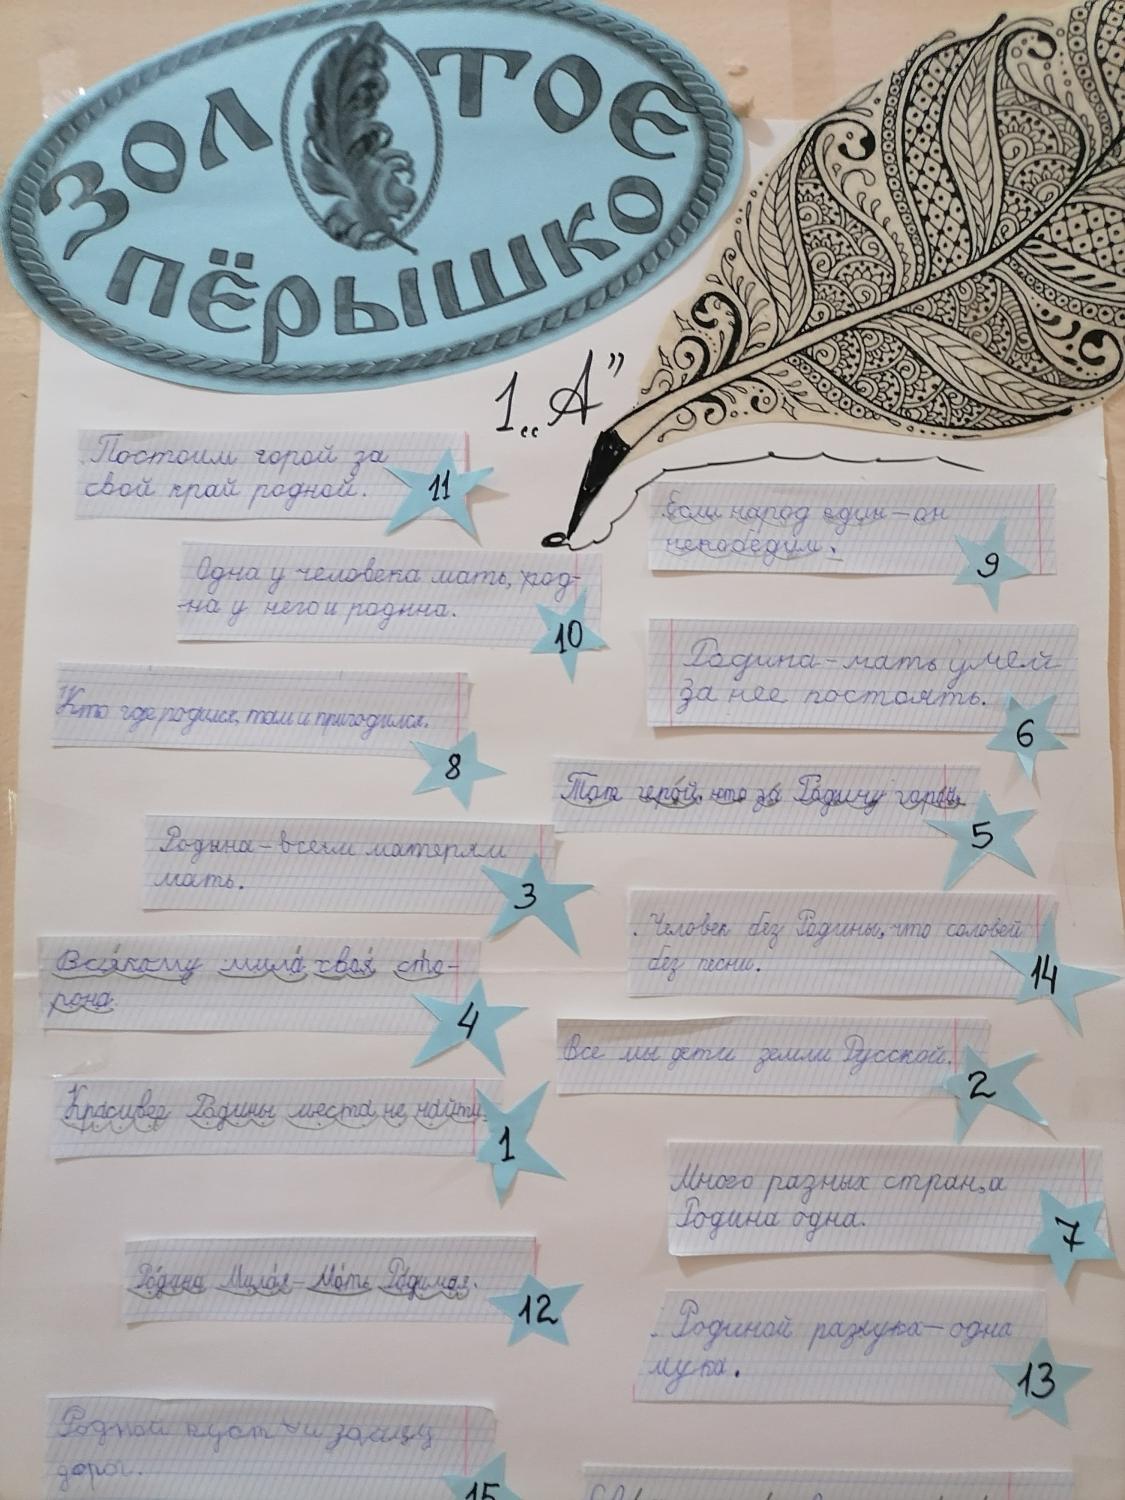 ЗОЛОТОЕ
ПЁРЫШКО
1 „А”
Постоим горой за
свой край родной.
11
Если народ един – он
непобедим.
9
Одна у человека мать, од-
на у него и родина.
10
Родина – мать умей
за нее постоять.
6
Кто где родился, там и пригодился.
8
Тот герой, кто за Родину горой.
5
Родина – всем матерям
мать.
3
Человек без Родины, что соловей
без песни.
14
Всякому мила своя сто-
рона.
4
Все мы дети земли Русской.
2
Красивее Родины места не найти.
1
Много разных стран, а
Родина одна.
7
Родина Милая – Мать Родимая.
12
Родиной разлука – одна
мука.
13
Родной куст и зайцу
дорог.
15